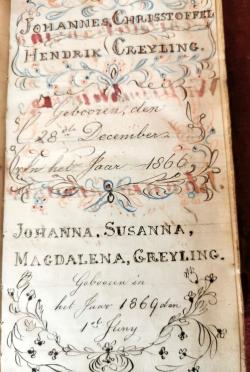 JOHANNES, CHRISSTOFFEL
HENDRIK GREYLING.
Gebooren, den
28ste December
in het Jaar 1866
JOHANNA, SUSANNA,
MAGDALENA, GREYLING.
Gebooren in
het Jaar 1869 den
1ste Juny